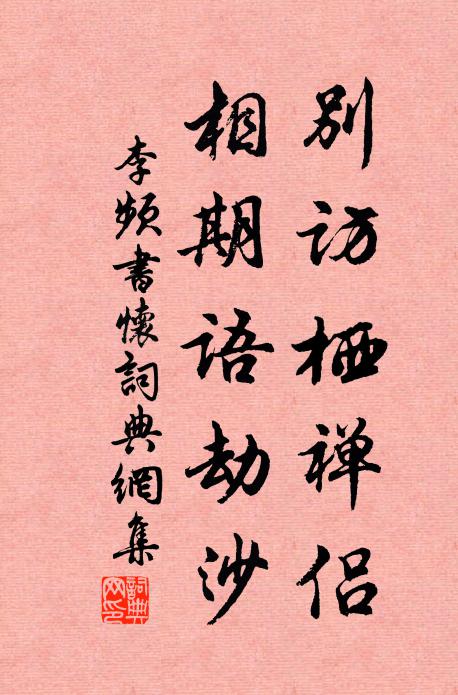 别访栖禅侣
相期语劫沙
李频书怀词典網集
詞典网印